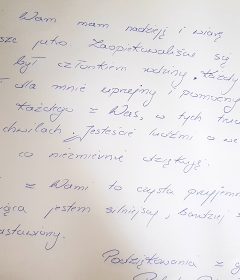 Wam mam nadzieję i wiarę
jutro. Zaopiekowaliście się
był członkiem rodziny. Każdy
dla mnie uprzejmy i pomocny
każdego z Was, w tych
chwilach. Jesteście ludźmi o
co niezmiernie dziękuję.
z Wami to czysta przyjem
jestem silniejszy, bardziej
Podziękowania z